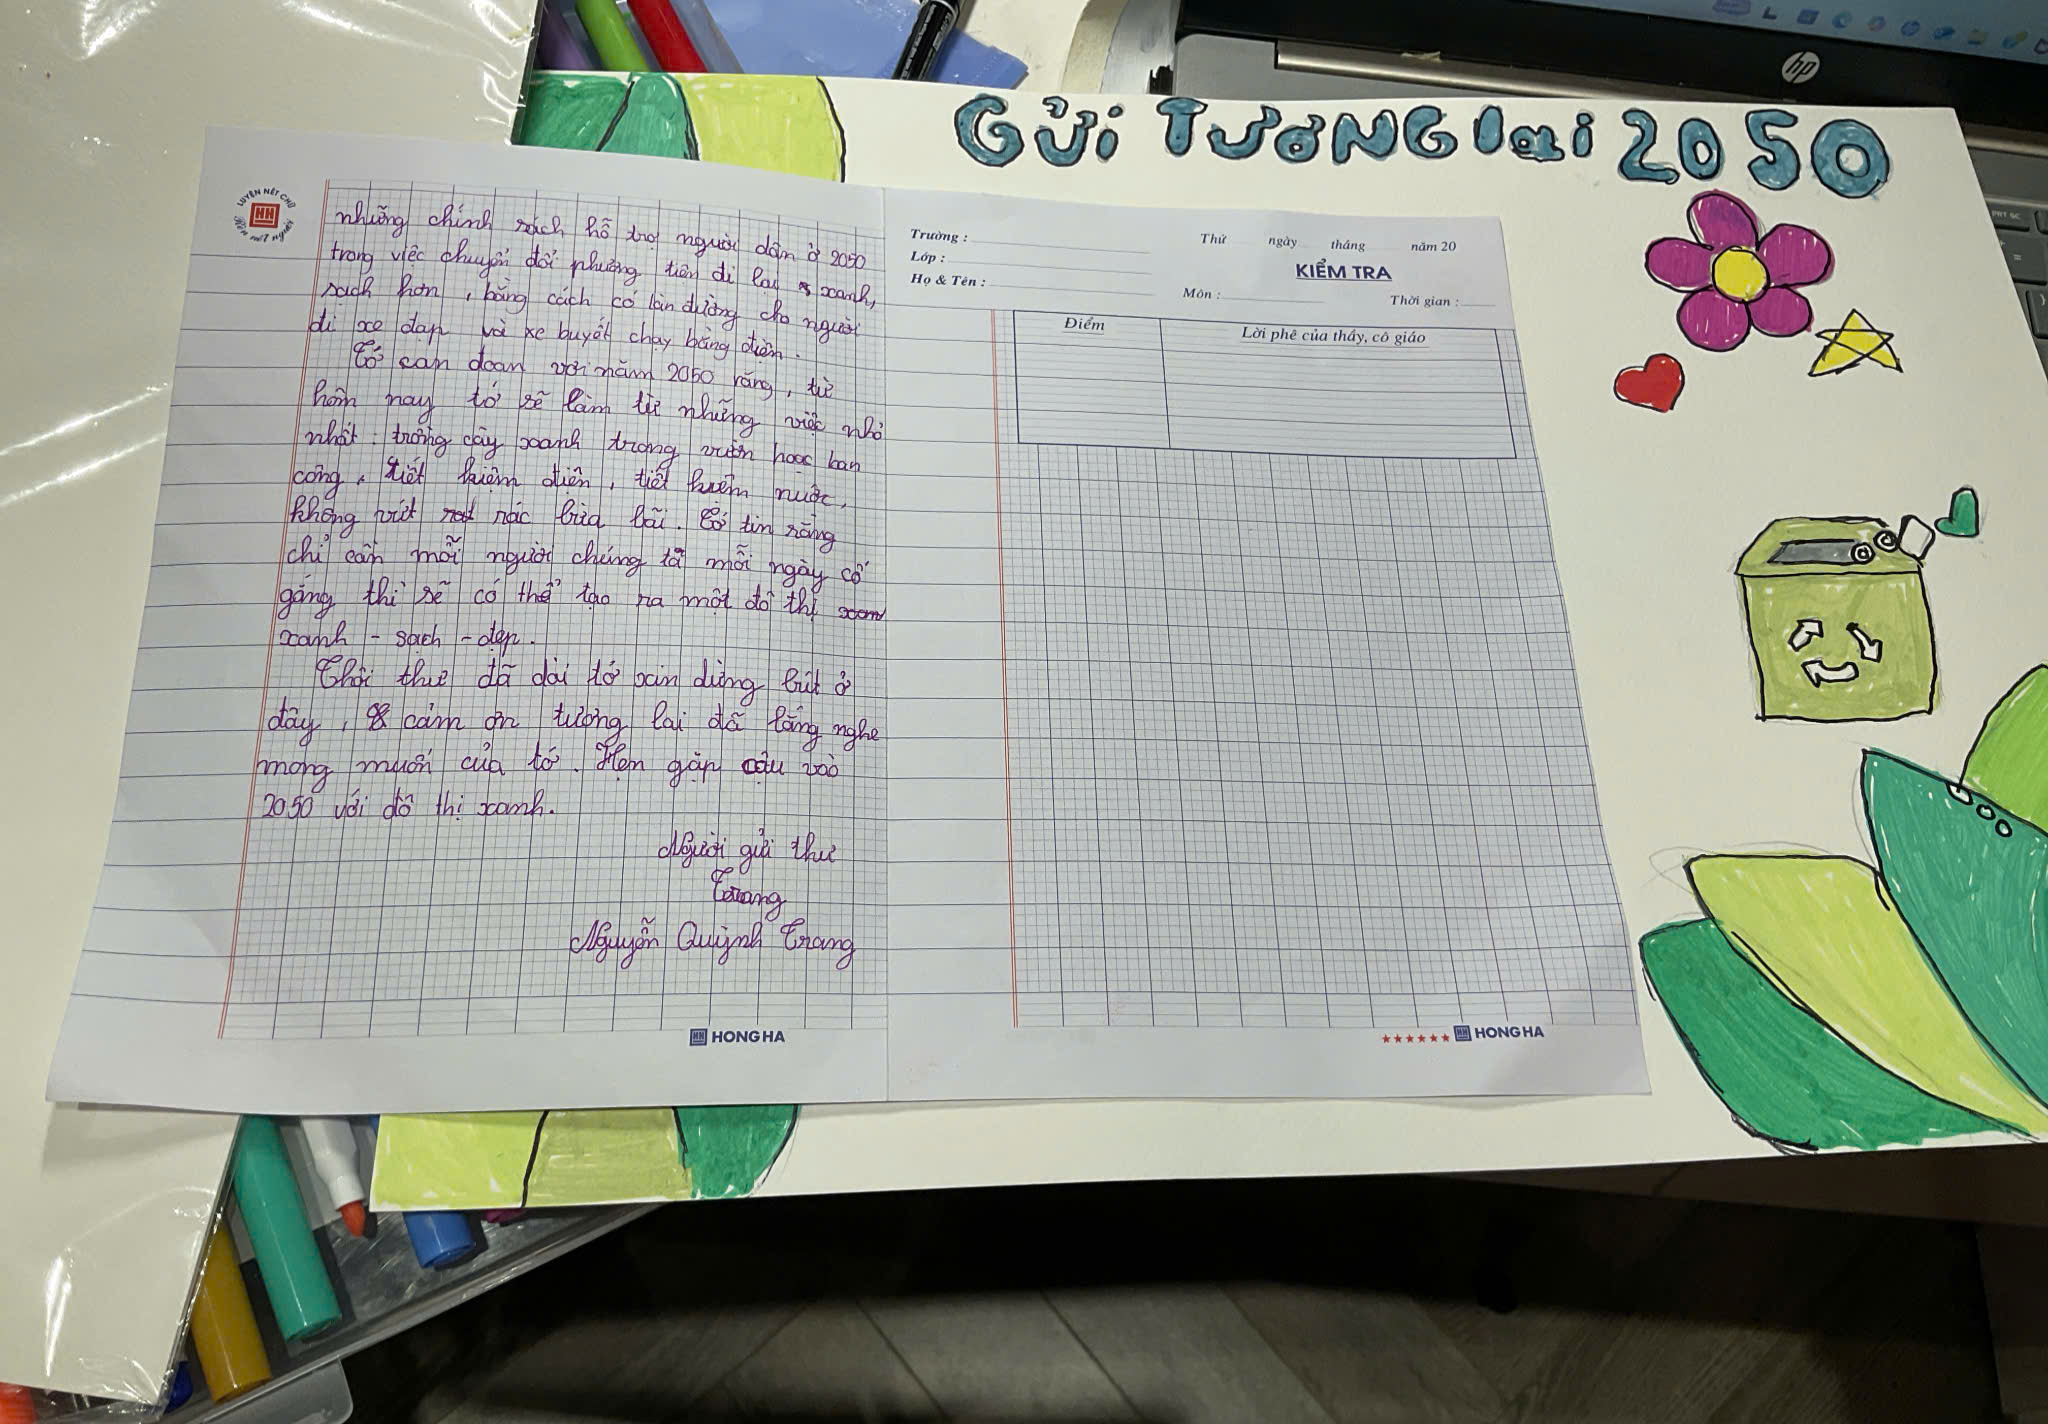 GỬI TƯƠNG lai 2050
hp
LUYỆN NÉT CHỮ
HH
Rèn nết người
những chính sách hỗ trợ người dân ở 2050
trong việc chuyển đổi phương tiện đi lại xanh,
sạch hơn, bằng cách có làn đường cho người
đi xe đạp và xe buyết chạy bằng điện.
Tớ cam đoan với năm 2050 rằng, từ
hôm nay tớ sẽ làm từ những việc nhỏ
nhất: trồng cây xanh trong vườn hoặc ban
công, tiết kiệm điện, tiết kiệm nước,
không vứt rác bừa bãi. Tớ tin rằng
chỉ cần mỗi người chúng ta mỗi ngày cố
gắng thì sẽ có thể tạo ra một đô thị
xanh - sạch - đẹp.
Thôi thư đã dài tớ xin dừng bút ở
đây, cảm ơn tương lai đã lắng nghe
mong muốn của tớ. Hẹn gặp cậu vào
2050 với đô thị xanh.
Người gửi thư
Trang
Nguyễn Quỳnh Trang
HH HONG HA
Trường :
Lớp :
Họ & Tên :
Thứ ngày tháng năm 20
KIỂM TRA
Môn : Thời gian :
Điểm
Lời phê của thầy, cô giáo
HH HONG HA
PRT SC